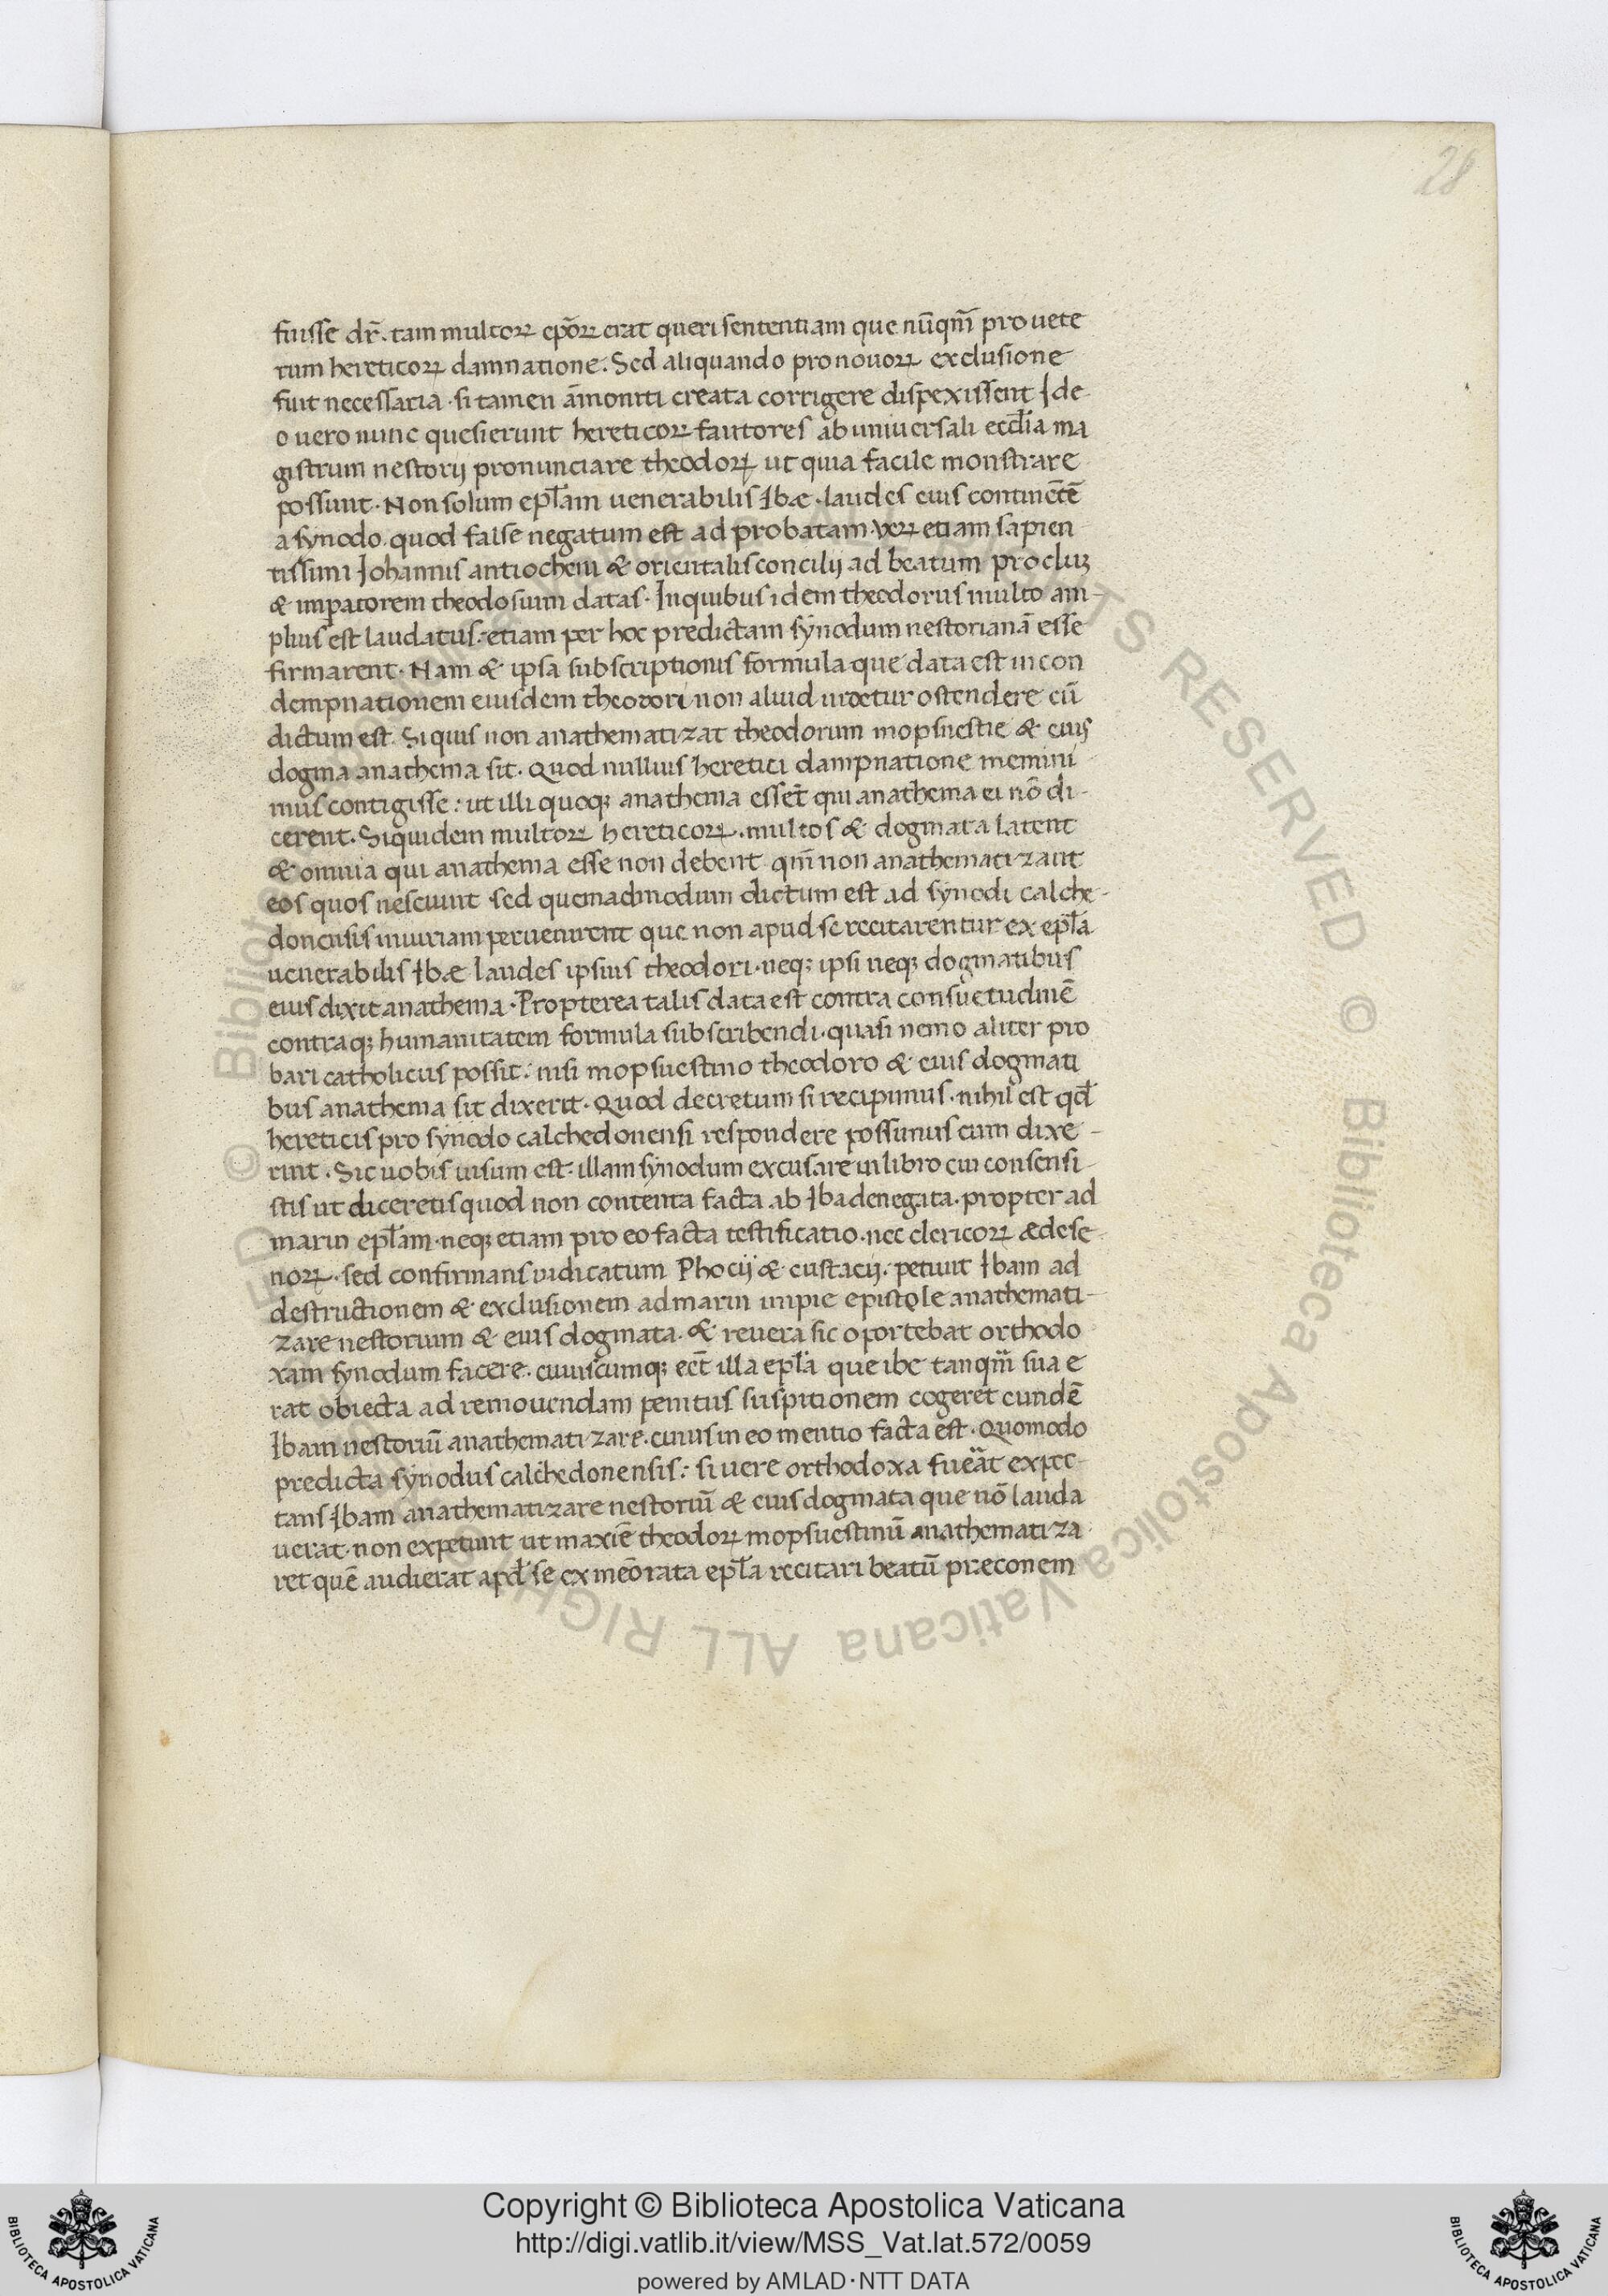 28
fuisse dr̄. tam multoꝝ ep̄oꝝ erat queri sententiam que nūqm̄ pro uete
rum hereticoꝝ damnatione. Sed aliquando pro nouoꝝ exclusione
fuit necessaria · si tamen āmoniti creata corrigere dispexissent Ide-
o uero nunc quesierunt hereticoꝝ fautores ab uniuersali ecclīa ma
gistrum nestorij pronunciare theodoꝝ ut quia facile monstrare
possunt · Non solum epl̄am uenerabilis Ibæ · laudes eius continētē
a synodo quod false negatum est ad probatam · veꝝ etiam sapien
tissimi Johannis antiocheni & orientalis concilij ad beatum procluꝫ
& imp̄atorem theodosium datas · In quibus idem theodorus multo am-
plius est laudatus : etiam per hoc predictam synodum nestorianā esse
firmarent · Nam & ipsa subscriptionis formula que data est in con
dempnationem eiusdem theodori non aliud uidetur ostendere cū
dictum est. Si quis non anathematizat theodorum mopsuestie & eius
dogma anathema sit. Quod nullius heretici dampnatione memini
mus contigisse : ut illi quoqꝫ anathema essēt qui anathema ei nō di-
cerent. Siquidem multoꝝ hereticoꝝ . multos & dogmata latent
& omnia qui anathema esse non debent qm̄ non anathematizant
eos quos nesciunt sed quemadmodum dictum est ad synodi calche-
donensis iniuriam peruenirent que non apud se recitarentur ex epl̄a
uenerabilis Ibæ laudes ipsius theodori · neqꝫ ipsi neqꝫ dogmatibus
eius dixit anathema · Propterea talis data est contra consuetudinē
contraqꝫ humanitatem formula subscribendi · quasi nemo aliter pro
bari catholicus possit : nisi mopsuestino theodoro & eius dogmati
bus anathema sit dixerit · Quod decretum si recipimus · nihil est qd̄
hereticis pro synodo calchedonensi respondere possimus cum dixe-
rint . Sic uobis uisum est : illam synodum excusare in libro cui consensi-
stis ut diceretis quod non contenta facta ab Iba denegata · propter ad
marin epl̄am · neqꝫ etiam pro eo facta testificatio · nec clericoꝝ ædese-
noꝝ · sed confirmans iudicatum Phocij & eustacij · petiuit Ibam ad
destructionem & exclusionem ad marin impie epistole anathemati-
zare nestorium & eius dogmata · & reuera sic oportebat orthodo
xam synodum facere · cuiuscumqꝫ eēt illa epl̄a que ibe tanqm̄ sua e
rat obiecta ad remouendam penitus suspitionem cogeret eundē
Ibam nestoriū anathematizare · cuius in eo mentio facta est · Quomodo
predicta synodus calchedonensis : si uere orthodoxa fueāt expec-
tans Ibam anathematizare nestoriū & eius dogmata que nō lauda
uerat · non expetiint ut maxiē theodoꝝ mopsuestinū anathematiza
ret quē audierat apd̄ se ex meōrata epl̄a recitari beatū præconem
© Biblioteca Apostolica Vaticana ALL RIGHTS RESERVED © Biblioteca Apostolica Vaticana ALL RIGHTS RESERVED
Copyright © Biblioteca Apostolica Vaticana
http://digi.vatlib.it/view/MSS_Vat.lat.572/0059
powered by AMLAD·NTT DATA
BIBLIOTECA APOSTOLICA VATICANA
BIBLIOTECA APOSTOLICA VATICANA